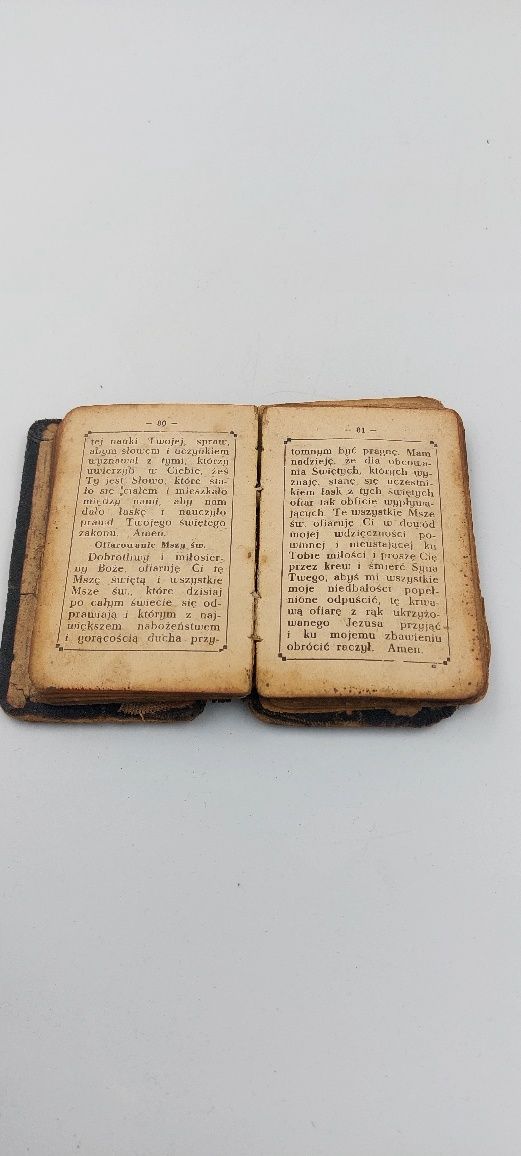 — 80 —
tej nauki Twojej, spraw,
abym słowem i uczynkiem
wyznawał z tymi, którzy
uwierzyli w Ciebie, żeś
Ty jest Słowo, które sta-
ło się ciałem i mieszkało
między nami, aby nam
dało łaskę i nauczyło
prawd Twojego świętego
zakonu. Amen.
Ofiarowanie Mszy św.
Dobrotliwy i miłosier-
ny Boże, ofiaruję Ci tę
Mszę świętą i wszystkie
Msze św., które dzisiaj
po całym świecie się od-
prawiają i którym z naj-
większem nabożeństwem
i gorącością ducha przy-
— 81 —
tomnym być pragnę. Mam
nadzieję, że dla obcowa-
nia Świętych, których wy-
znaję, stanę się uczestni-
kiem łask z tych świętych
ofiar tak obficie wypływa-
jących. Te wszystkie Msze
św. ofiaruję Ci w dowód
mojej wdzięczności po-
winnej i nieustającej ku
Tobie miłości i proszę Cię
przez krew i śmierć Syna
Twego, abyś mi wszystkie
moje niedbałości popeł-
nione odpuścić, tę krwa-
wą ofiarę z rąk ukrzyżo-
wanego Jezusa przyjąć
i ku mojemu zbawieniu
obrócić raczył. Amen.